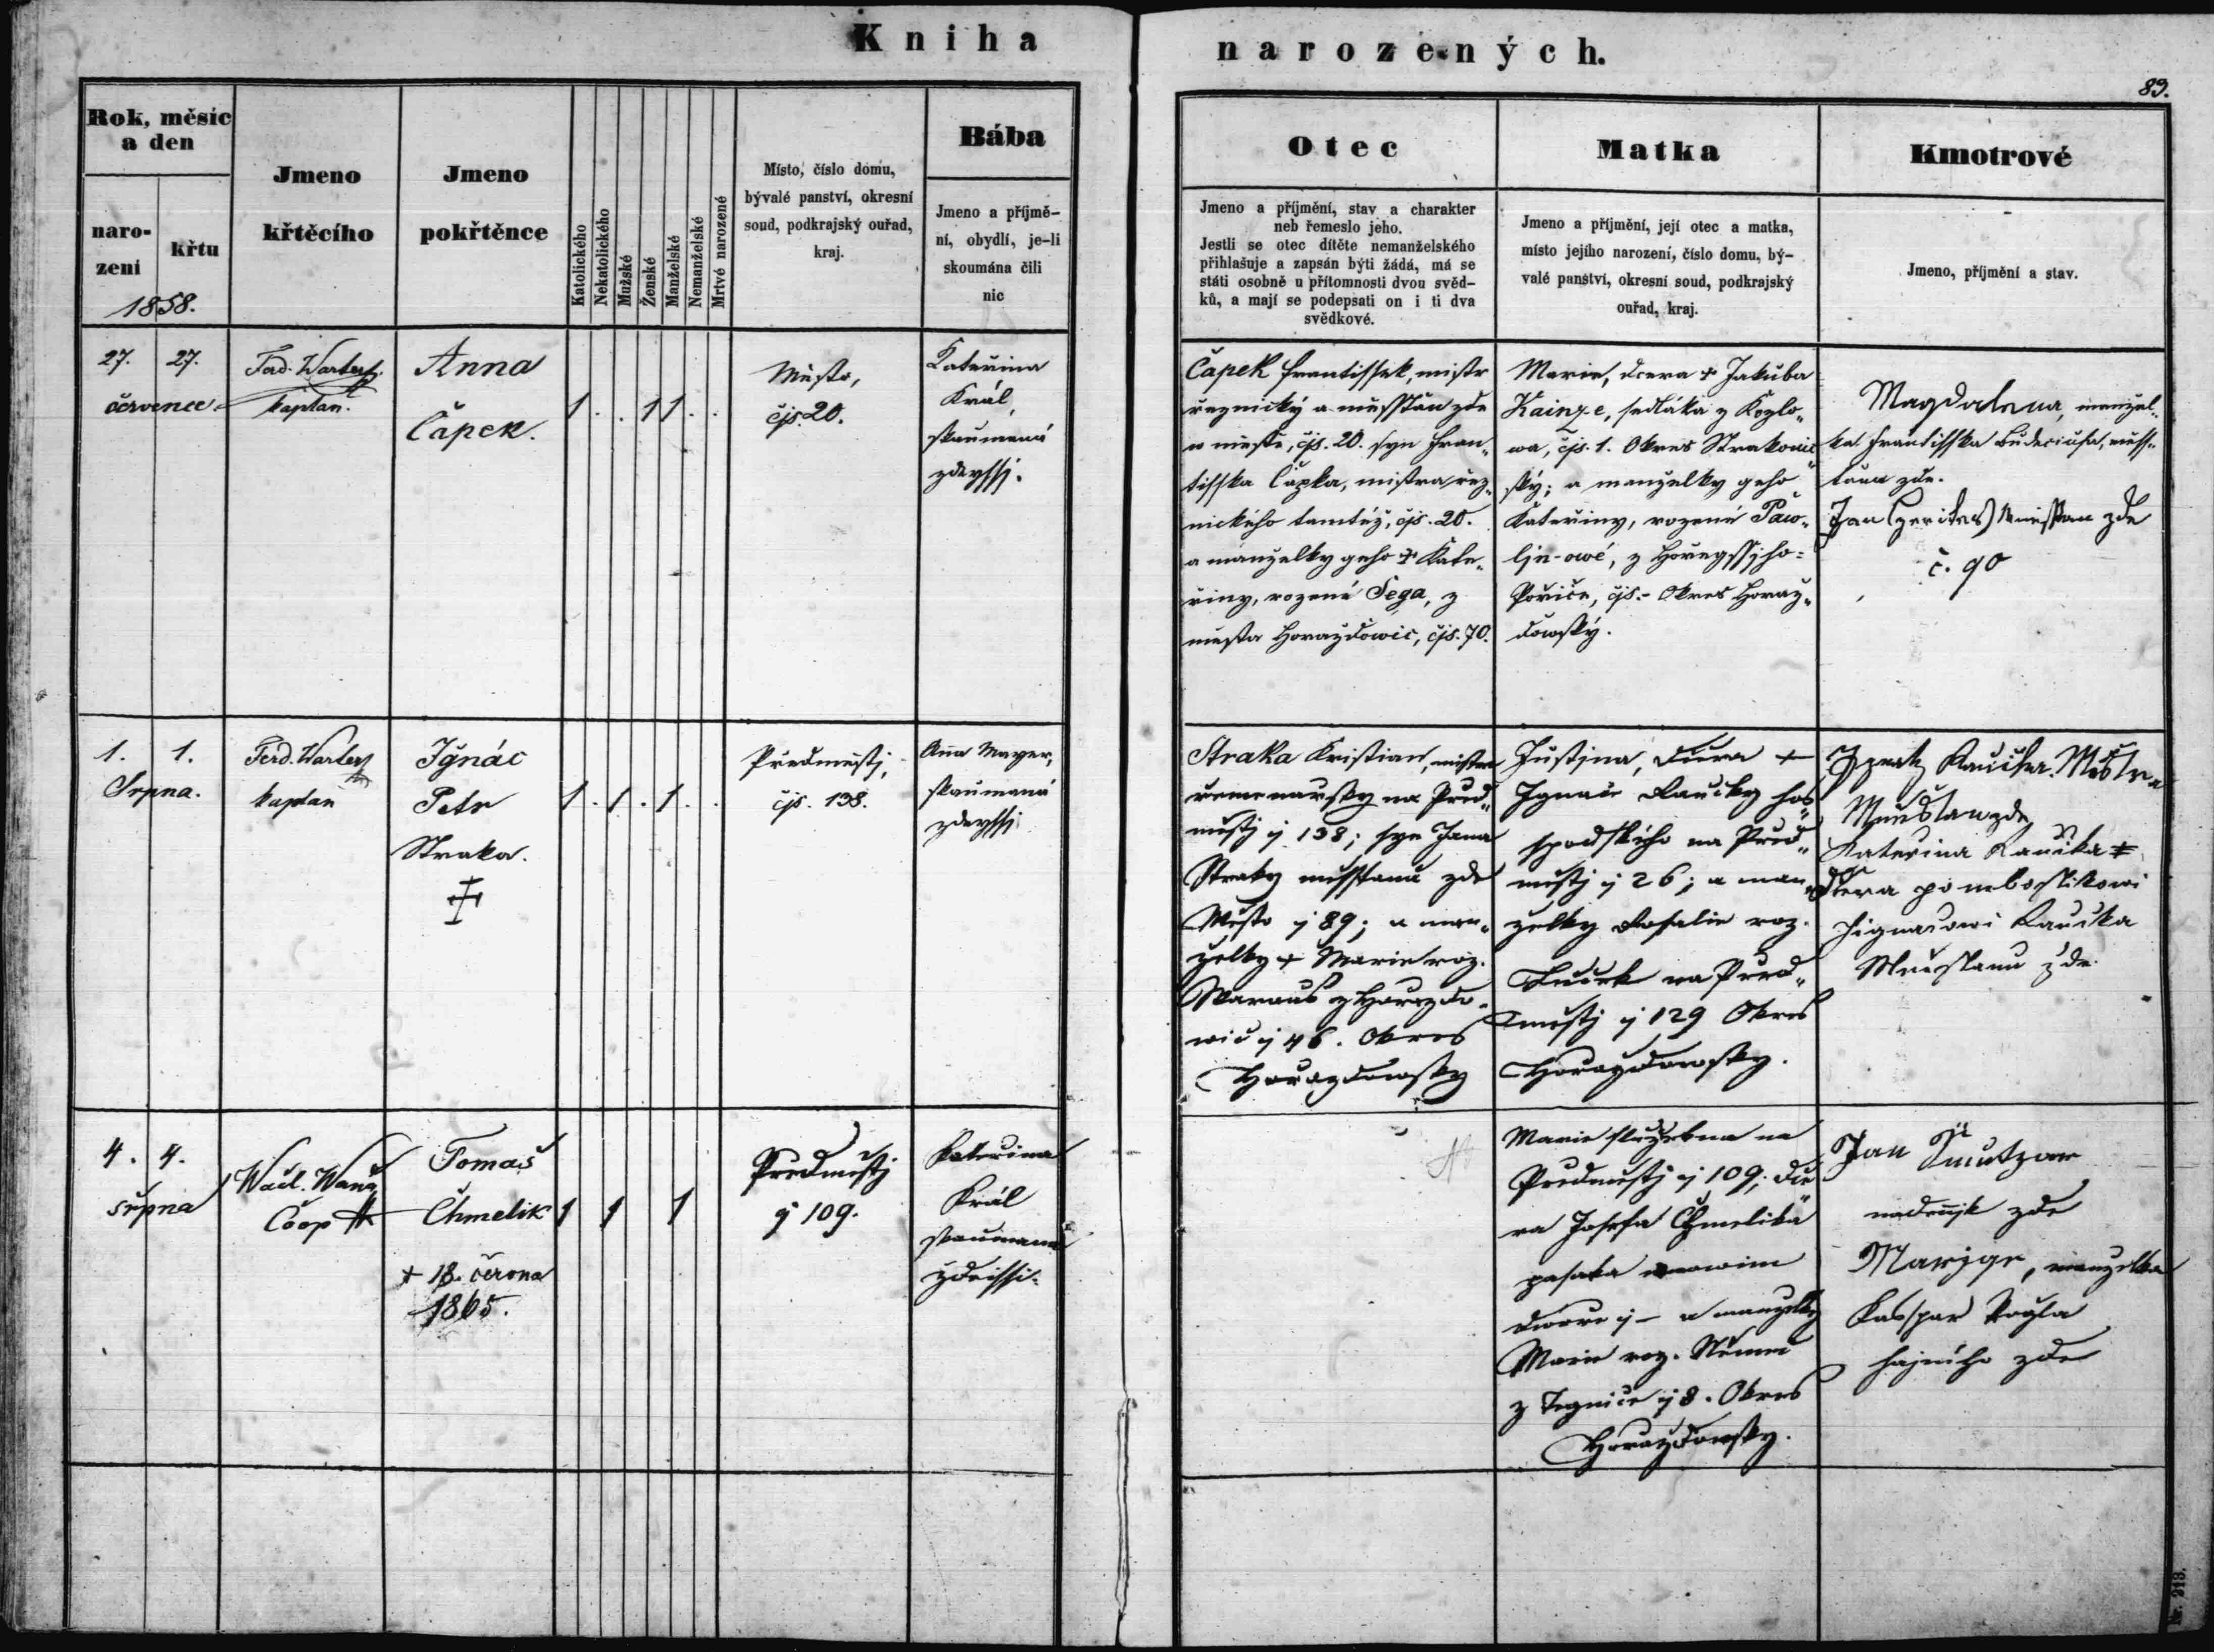 Kniha narozených.
83.
Rok, měsíc
a den
naro-
zení
křtu
1858.
Jmeno
křtěcího
Jmeno
pokřtěnce
Katolického
Nekatolického
Mužské
Ženské
Manželské
Nemanželské
Mrtvé narozené
Místo, číslo domu,
bývalé panství, okresní
soud, podkrajský ouřad,
kraj.
Bába
Jmeno a příjmě-
ní, obydlí, je-li
skoumána čili
nic
Otec
Jmeno a příjmění, stav a charakter
neb řemeslo jeho.
Jestli se otec dítěte nemanželského
přihlašuje a zapsán býti žádá, má se
státi osobně u přítomnosti dvou svěd-
ků, a mají se podepsati on i ti dva
svědkové.
Matka
Jmeno a příjmění, její otec a matka,
místo jejího narození, číslo domu, bý-
valé panství, okresní soud, podkrajský
ouřad, kraj.
Kmotrové
Jmeno, příjmění a stav.
27. 27.
července
Ferd.
kaplan.
Anna
Čapek.
1 . . 1 1 . .
Město,
čjs. 20.
Kateřina
Král,
skaumaná
zdegssj.
Čapek Frantissek, mistr
řeznický a měsstan zde
w městě, čjs. 20. syn Fran„
tisska Čapka, mistra řez„
nického tamtéž, čjs. 20.
a manzelky geho + Kate„
řiny, rozené Sega, z
města Horažďowic, čjs. 70.
Marie, dcera + Jakuba
Kainze, sedláka z Kozlo„
wa, čjs. 1. Okres Strakonic„
ský; a manzelky geho
Kateřiny, rozené Paw„
ljn-owé, z Hořegssjho=
Pořiče, čjs.- Okres Horaž„
ďowský.
Magdalena, manžel„
ka Frantisska měss„
ťana zde.
Jan Měssťan zde
č. 90
1. 1.
Srpna.
Ferd.
kaplan
Ignác
Petr
Straka.
1 . 1 . 1 . .
Předměstj,
čjs. 138.
Anna Mayer,
skaumaná
zdegssj
Straka Kristian, mistr
řemenařský na Před„
městj č 138; syn Jana
Straky měsstana zde
Město č 89; a man„
zelky + Marie roz.
z Horazdo„
wic č 46. Okres
Horazdowsky
Justina, dcera +
Ignace Raucky hos„
podského na Před„
městj č 26; a man„
zelky Rosalie roz.
na Před„
městj č 129 Okres
Horazdowsky.
Měsstan zde
Katerina Raucka
Dcera po neboštikowi
Hignacowi Raucka
Měsstanu zde
4. 4.
srpna
Wácl.
Coop
Tomaš
Chmelik
+ 18. června
1865.
1 1 1
Předměstj
č 109.
Kateřina
Král
skaumana
zdeissi.
Marie služebna na
Předměstj č 109; dce„
ra Josefa Chmelika
pasaka w nowim
dwoře č - a manzelky
Marie roz. Němec
z Tegnice č 8. Okres
Horazdowsky.
Jan
zde
Marige, manzelka
Kaspar
hajného zde
Nr. 213.